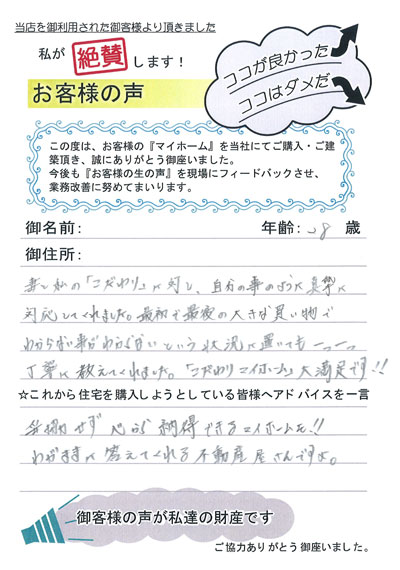 当店を御利用された御客様より頂きました
私が 絶賛 します!
ココが良かった
ココはダメだ
お客様の声
この度は、お客様の『マイホーム』を当社にてご購入・ご建
築頂き、誠にありがとう御座いました。
今後も『お客様の生の声』を現場にフィードバックさせ、
業務改善に努めてまいります。
御名前: 年齢: 28 歳
御住所:
妻と私の「こだわり」に対し、自分の事のように真摯に
対応してくれました。最初で最後の大きな買い物で
わからない事がわからないという状況に置いても一つ一つ
丁寧に教えてくれました。「こだわりマイホーム」大満足です!!
☆これから住宅を購入しようとしている皆様へアドバイスを一言
せず 心から 納得できるマイホームを!!
わがままに答えてくれる不動産屋さんですよ。
御客様の声が私達の財産です
ご協力ありがとう御座いました。